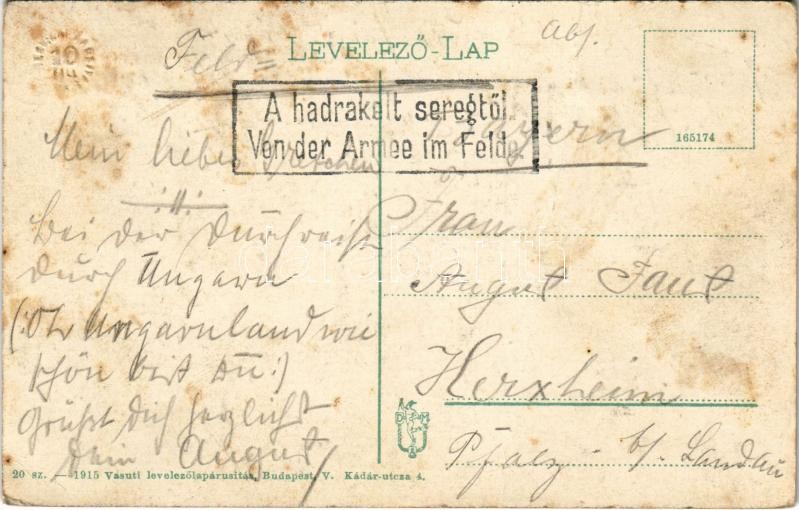 Abs.
LEVELEZŐ-LAP
Feld=
A hadrakelt seregtől.
Von der Armee im Felde.
165174
Bayern
Mein liebes Gretchen
Frau
Bei der Durchreise
durch Ungarn
August Faust
(:Oh Ungarnland wie
schön bist Du:)
Herxheim
Grüßt dich herzlichst
dein August
Pfalz b/. Landau
20 sz. — 1915 Vasuti levelezőlapárusitás, Budapest, V. Kádár-utcza 4.